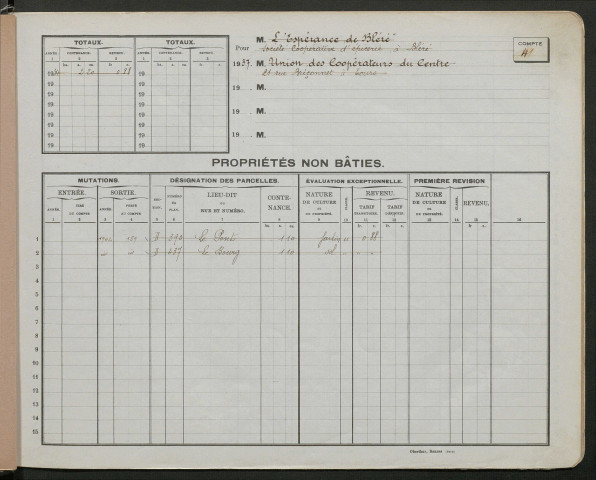 TOTAUX. TOTAUX.
ANNÉE. CONTENANCE. REVENU. ANNÉE. CONTENANCE. REVENU.
1 2 3 1 2 3
ha. a. ca. fr. c. ha. a. ca. fr. c.
19 2 20 0 88 19
19 19
19 19
19 19
19 19
19 19
M. L'"Espérance de Bléré"
Pour Société Coopérative d'épicerie à Bléré
1937 M. Union des Coopérateurs du Centre
21 rue Briçonnet à Tours
19 M.
19 M.
19 M.
COMPTE
PROPRIÉTÉS NON BÂTIES.
MUTATIONS. DÉSIGNATION DES PARCELLES. ÉVALUATION EXCEPTIONNELLE. PREMIÈRE RÉVISION
ENTRÉE. SORTIE. SECTION. NUMÉRO du PLAN. LIEU-DIT ou RUE ET NUMÉRO. CONTENANCE. NATURE DE CULTURE ou DE PROPRIÉTÉ. CLASSE. REVENU. NATURE DE CULTURE ou DE PROPRIÉTÉ. CLASSE. REVENU.
ANNÉE. TIRÉ DU COMPTE ANNÉE. PORTÉ AU COMPTE TARIF TARIF
1 B 390 Le Pont 1 10 Jardin 0 88
2 B 437 Le Bourg 1 10 sol
3
4
5
6
7
8
9
10
11
12
13
14
15